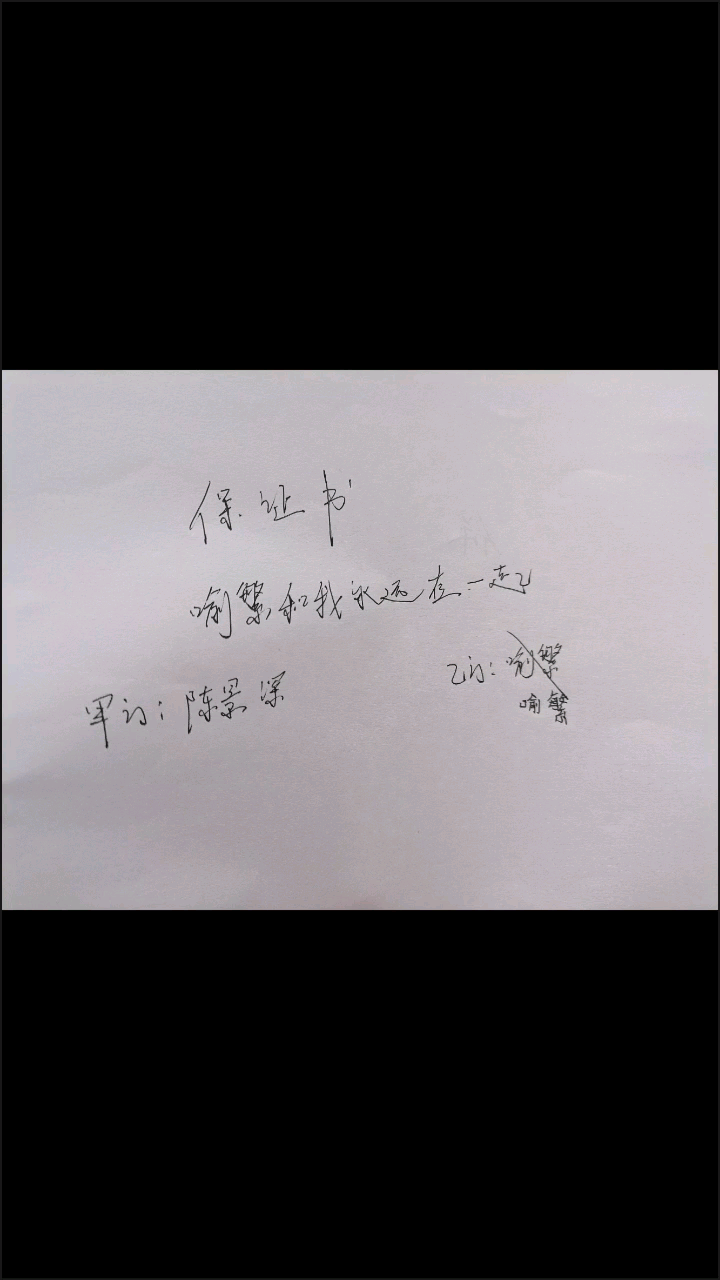 保证书
喻繁和我永远在一起
甲方：陈景深
乙方：喻繁
喻繁